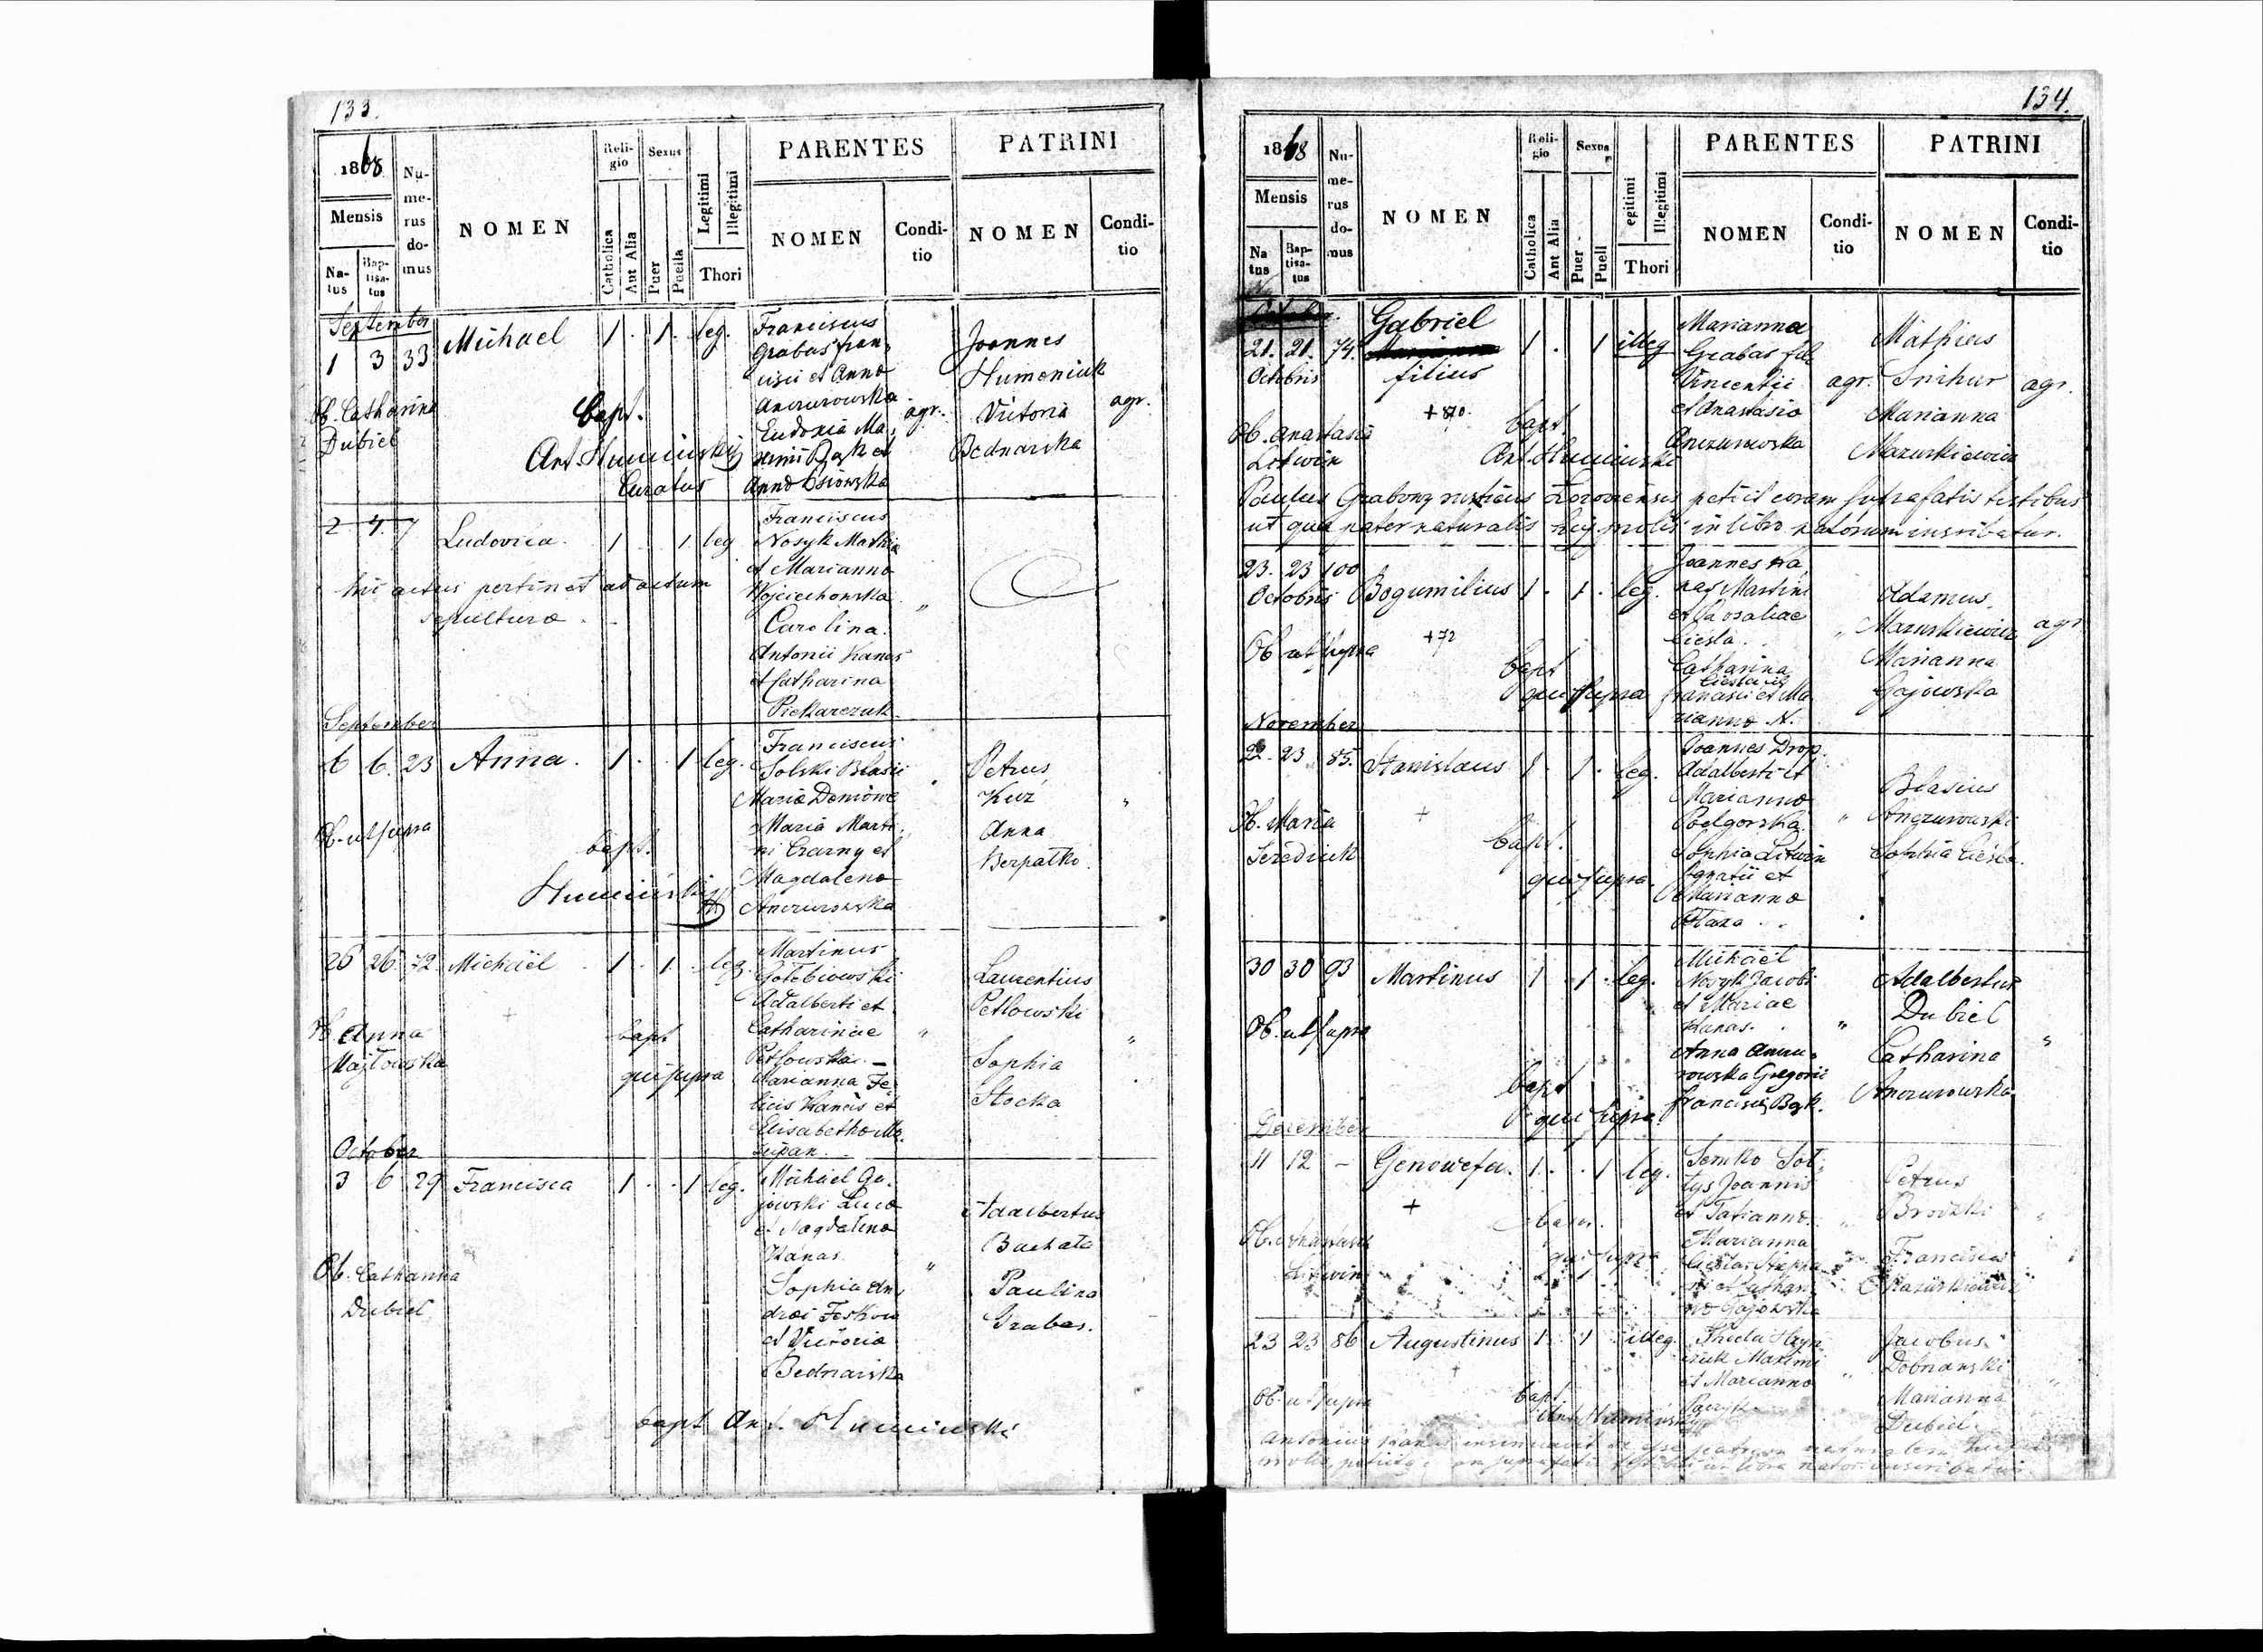 133.
1868
Mensis
Natus
Baptisatus
Numerus domus
NOMEN
Religio
Catholica
Aut Alia
Sexus
Puer
Puella
Legitimi
Illegitimi
Thori
PARENTES
NOMEN
Conditio
PATRINI
NOMEN
Conditio
September
1 3 33 Michael 1 . 1 . leg.
Franciscus
Grabas Fran,
cisci et Anna
Anczurowska
Eudoxia Ma,
Bąk et
Anna
agr.
Joannes
Humeniuk
Victoria
Bednarska
agr.
Ob. Catharina
Dubiel
bapt.
Ant. Humiński
Curatus
2 4 7 Ludovica . 1 . . 1 leg
Franciscus
Nosyk Mathia
et Marianna
Wojciechowska
Carolina
Antonii Kanas
et Catharina
Piekarczuk
"
hic actus pertinet ad actum
sepulturae .
September
6 6 23 Anna . 1 . . 1 leg.
Franciscus
Solski Blasii
Maria
Maria Marti,
ni Czarny et
Magdalena
Anczurowska
Petrus
Kurz
Anna
Berpałko
"
Ob. ut supra
bapt.
Humiński
26 26 72 Michael . 1 . 1 . leg.
Martinus
Gołebiowski
Adalberti et
Catharinae
Petlowska. —
Marianna Fe,
licis Kanas et
Elisabetha Ma,
zupan.
"
Laurentius
Petlowski
Sophia
Stocka
"
Ob. Anna
Majlowska
bapt
qui supra
October
3 6 29 Francisca 1 . . 1 leg.
Michael Ga,
jowski Luca
et Magdalena
Kanas.
Sophia An,
drei
et Victoria
Bednarska
"
Adalbertus
Bachata
Paulina
Grabas.
Ob. Catharina
Dubiel
bapt Ant. Humiński
134.
1868
Mensis
Natus
Baptisatus
Numerus domus
NOMEN
Religio
Catholica
Aut Alia
Sexus
Puer
Puell
egitimi
Illegitimi
Thori
PARENTES
NOMEN
Conditio
PATRINI
NOMEN
Conditio
21. 21. 74. Gabriel 1 . 1 illeg
Octobris filius
+870.
Marianna
Grabas fil.
Vincentii
et Anastasia
Anczurowska
agr.
Mathias
Snihur
Marianna
Mazurkiewicz
agr.
Ob. Anastasia
Litwin
bapt.
Ant. Humiński
Paulus Grabowy rusticus petiit coram suprafatis testibus
ut qua pater naturalis hujus prolis in libro natorum inscribatur.
23. 23 100
Octobris Bogumilius 1 . 1 . leg.
+72
Joannes Ka,
nas Martini
et Rosaliae
Ciesla.
Catharina
Ciesla
et Ma
rianna N.
"
Adamus
Mazurkiewicz
Marianna
Gajowska
agr
Ob. ut supra
bapt
qui supra
November
22. 23 85. Stanislaus 1 . 1 . leg.
+
Joannes Drop
Adalberti et
Marianna
Podgorska.
Sophia Litwin
Ignatii et
Marianna
"
Blasius
Anczurowski
Sophia Ciesla.
Ob. Maria
Serediuk
bapt.
qui supra
30 30 93 Martinus 1 . 1 . leg.
Michael
Nosyk Jacobi
et Mariae
Kanas.
Anna Anczu,
rowska Gregorii
Francisca Bąk.
"
Adalbertus
Dubiel
Catharina
Anczurowska
"
Ob. ut supra
bapt
qui supra
December
11 12 – Genowefa. 1 . . 1 leg.
+
Semko Soł,
tys Joannis
et Tatianna.
Marianna
Ciesla
et Cathari
na Gajowska
"
Petrus
Brodzki
Francisca
Mazurkiewicz
"
Litwin
bapt.
qui supra
23 23 86 Augustinus 1 . 1 . illeg.
Thecla
Maximi
et Marianna
"
Jacobus
Dobrianski
Marianna
Dubiel.
Ob. ut supra
bapt
Ant. Humiński
Antonius